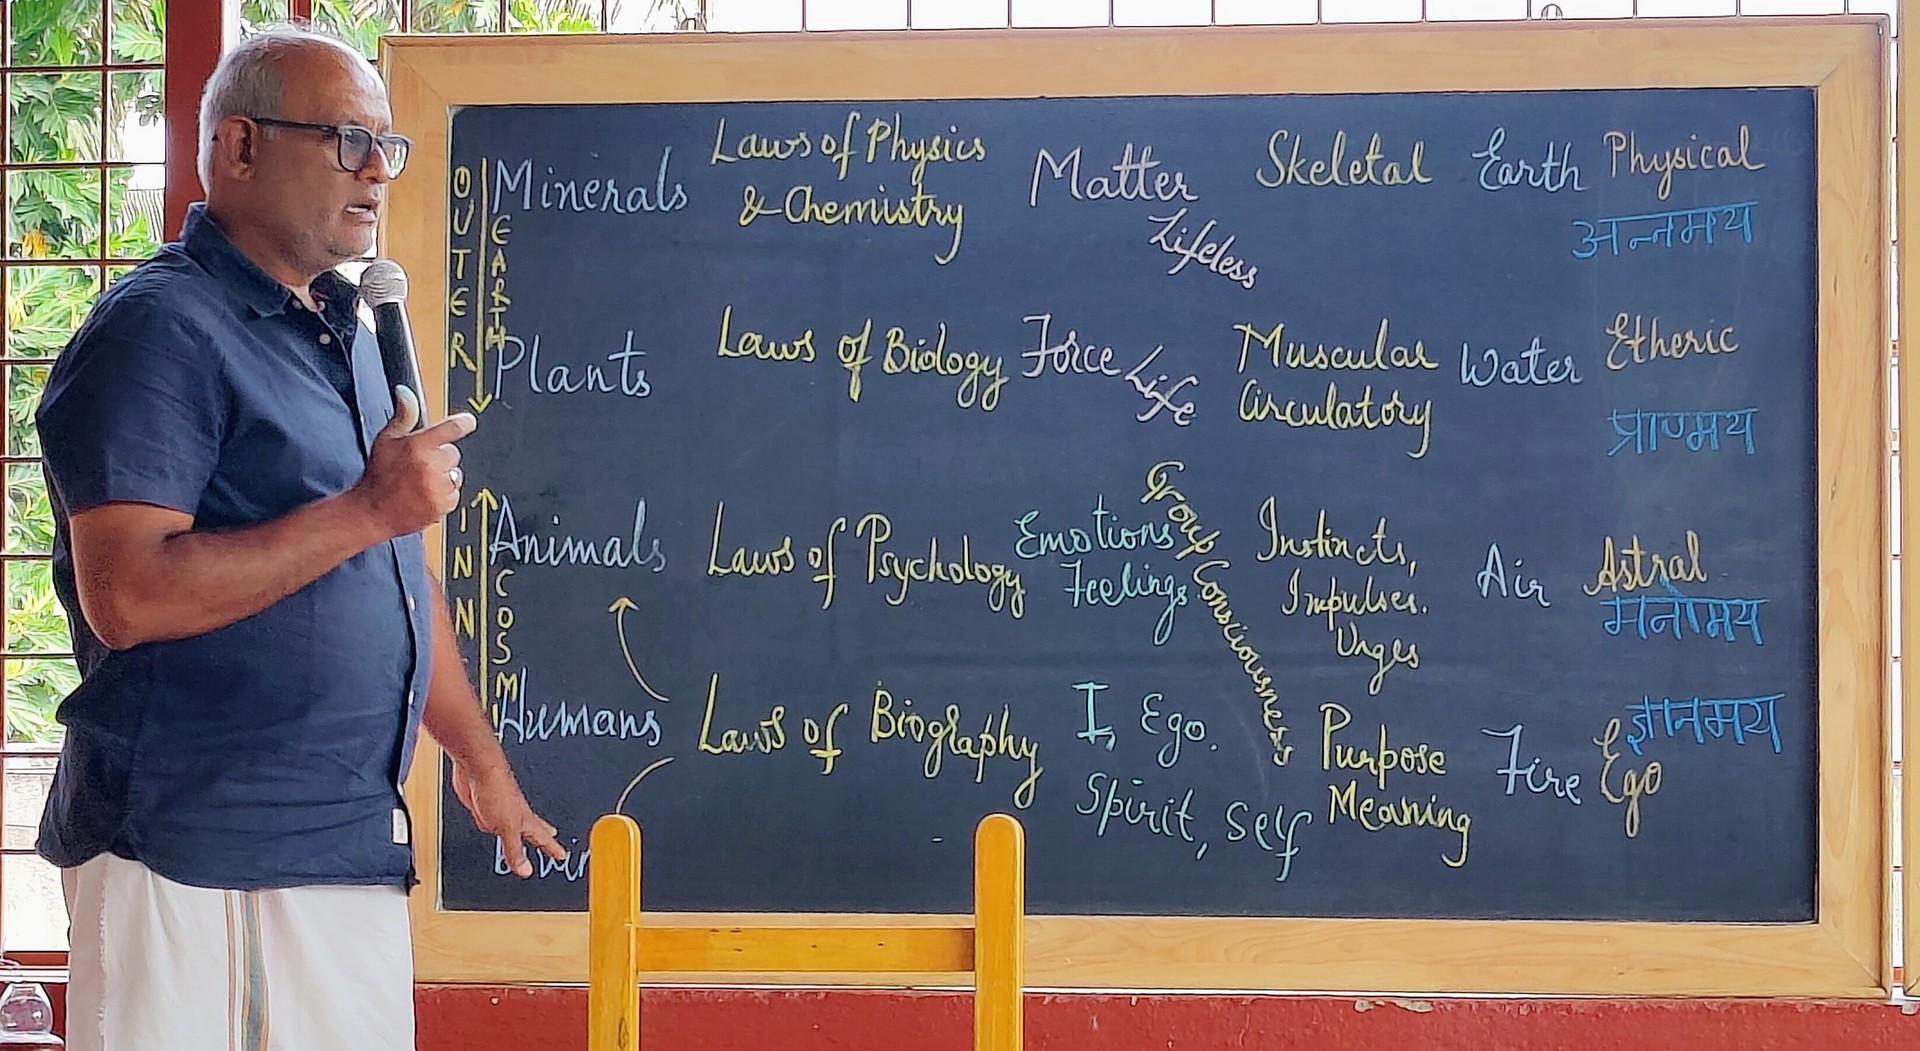 OUTER
EARTH
Minerals
Laws of Physics
& Chemistry
Matter
Lifeless
Skeletal
Earth
Physical
अन्नमय
Plants
Laws of Biology
Force
Life
Muscular
Circulatory
Water
Etheric
प्राणमय
INN
COSMI
Animals
Laws of Psychology
Emotions
Feelings
Group Consciousness
Instincts,
Impulses.
Urges
Air
Astral
मनोमय
Humans
Laws of Biography
I, Ego.
Spirit, Self
Purpose
Meaning
Fire
Ego
ज्ञानमय